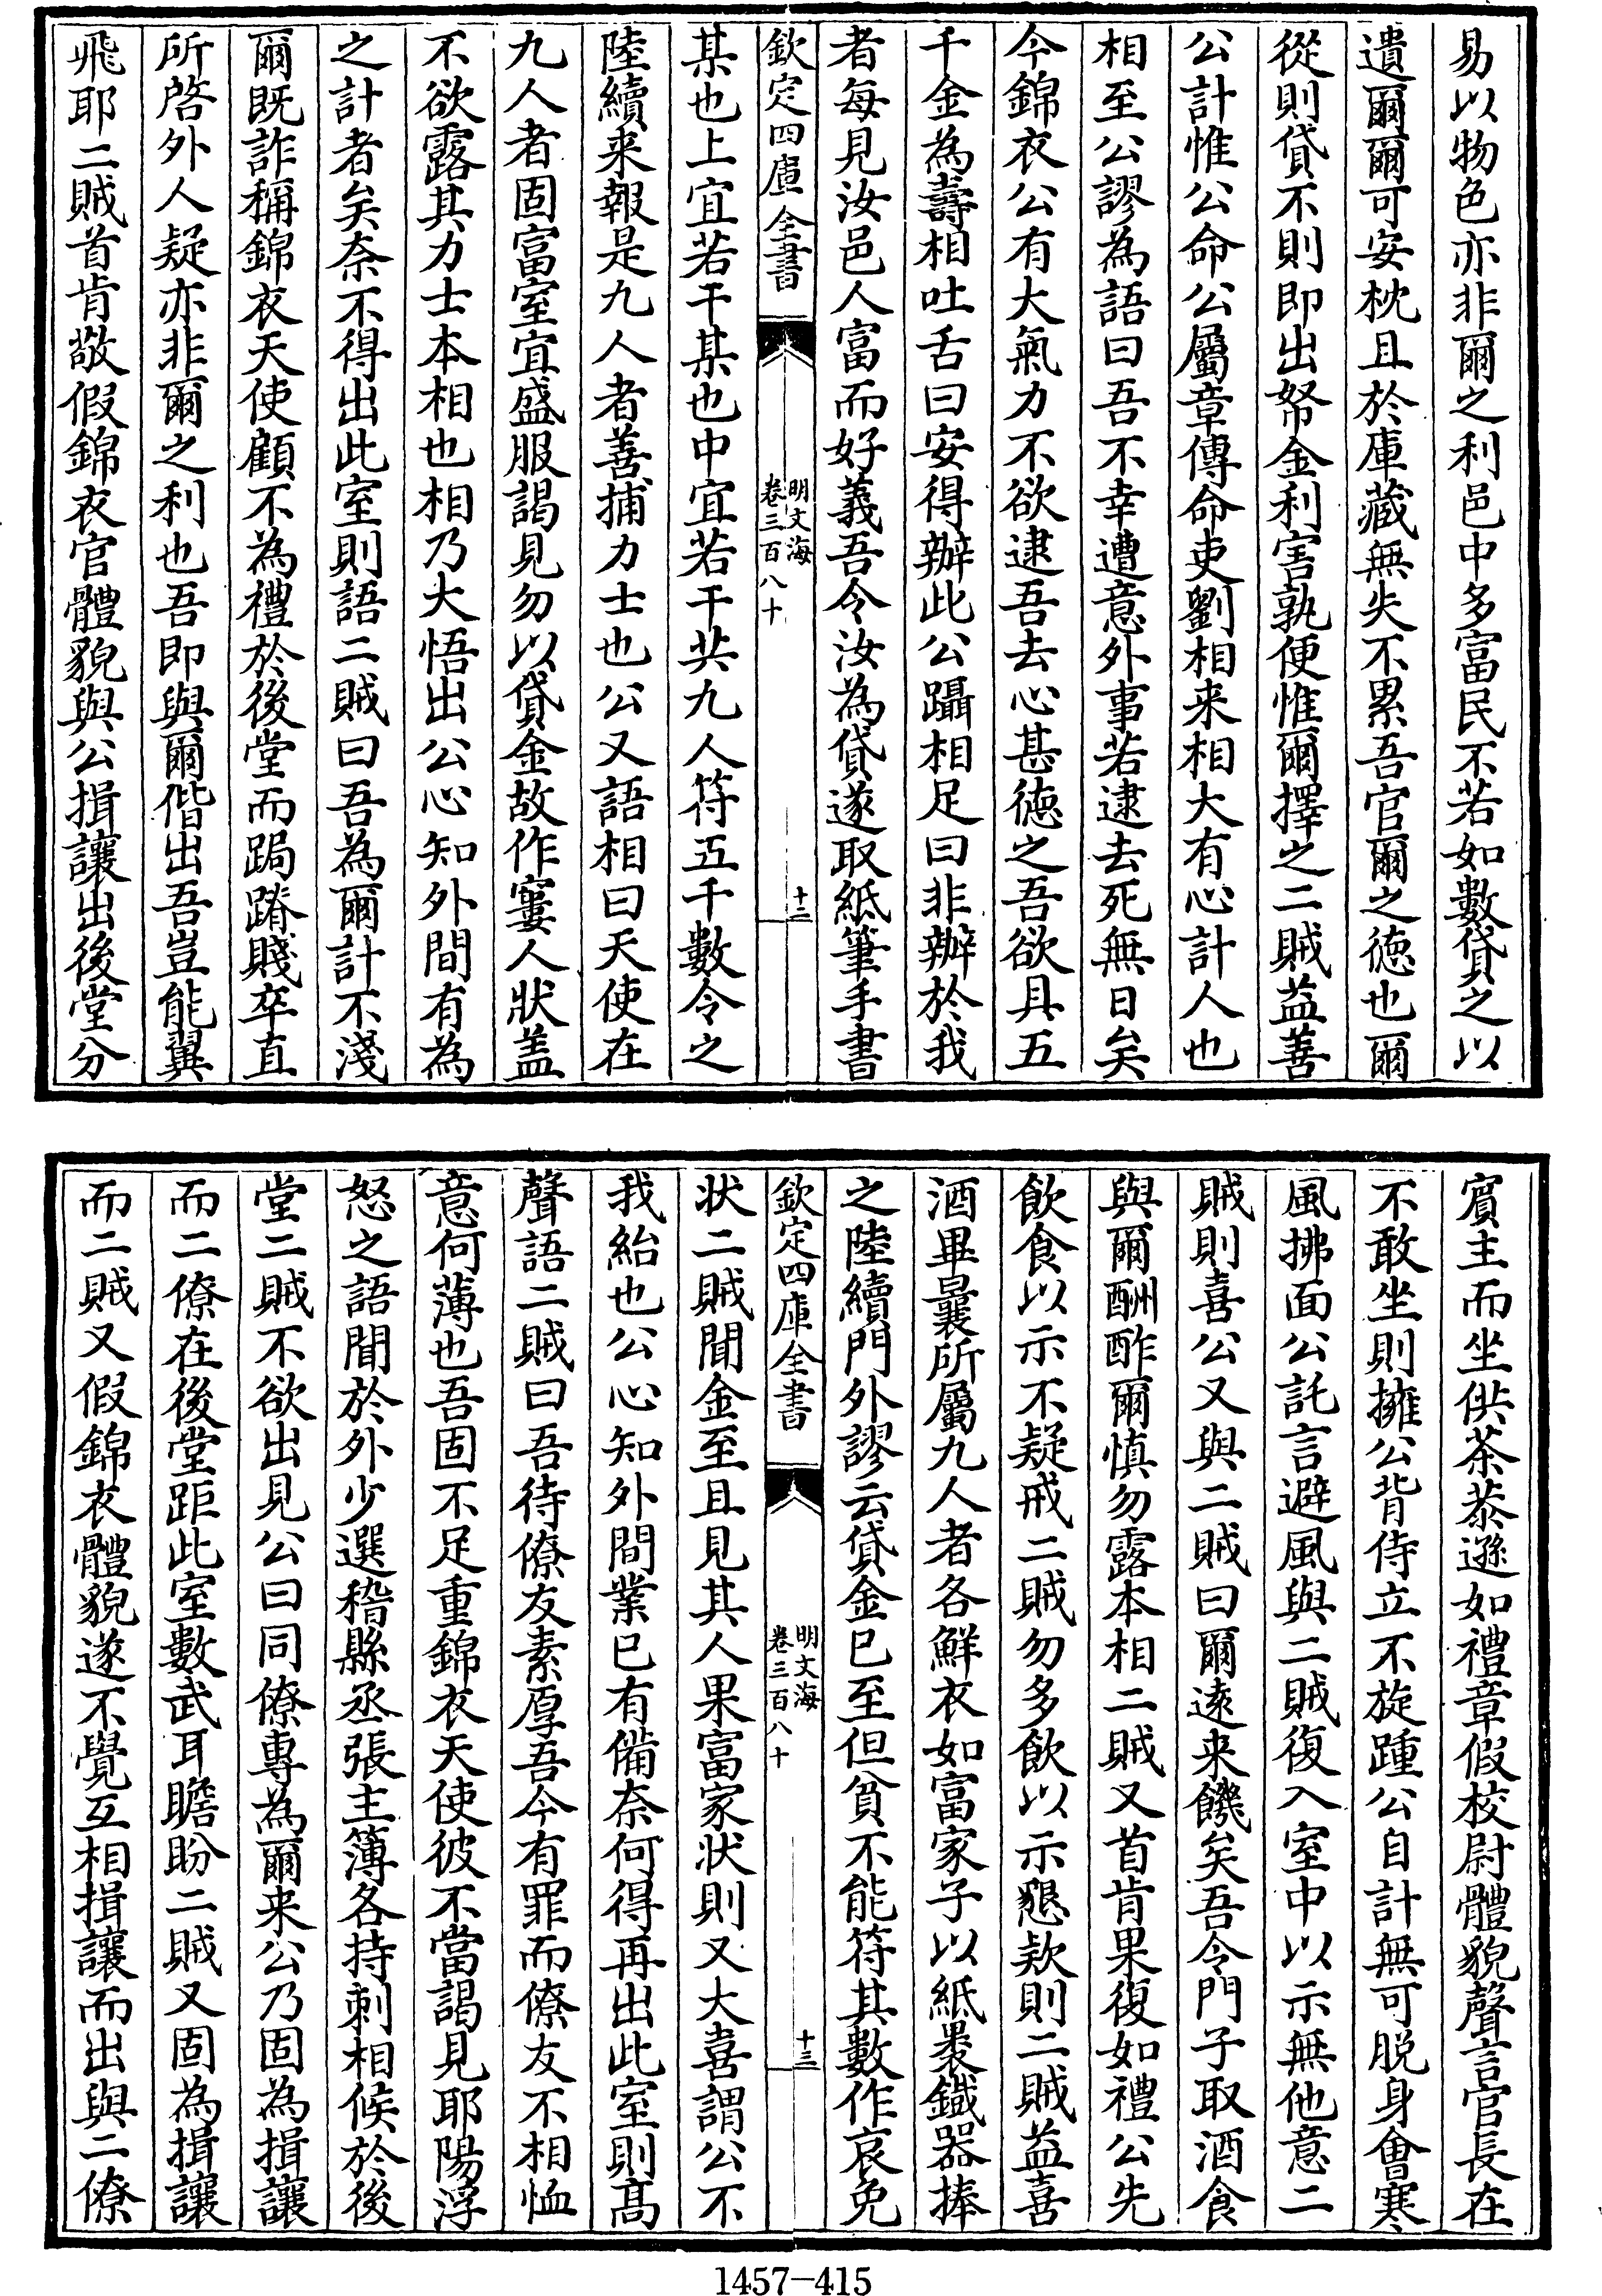 易以物色亦非爾之利邑中多富民不若如數貸之以
遺爾爾可安枕且於庫藏無失不累吾官爾之德也爾
從則貸不則即出帑金利害孰便惟爾擇之二賊益善
公計惟公命公屬章傳命吏劉相来相大有心計人也
相至公謬為語曰吾不幸遭意外事若逮去死無日矣
今錦衣公有大氣力不欲逮吾去心甚德之吾欲具五
千金為壽相吐舌曰安得辦此公躡相足曰非辦於我
者每見汝邑人富而好義吾令汝為貸遂取紙筆手書
欽定四庫全書
明文海
卷三百八十
十二
某也上宜若干某也中宜若干共九人符五千數令之
陸續来報是九人者善捕力士也公又語相曰天使在
九人者固富室宜盛服謁見勿以貸金故作窶人狀盖
不欲露其力士本相也相乃大悟出公心知外間有為
之計者矣奈不得出此室則語二賊曰吾為爾計不淺
爾既詐稱錦衣天使顧不為禮於後堂而跼蹐賤卒直
所啓外人疑亦非爾之利也吾即與爾偕出吾豈能翼
飛耶二賊首肯敬假錦衣官體貌與公揖讓出後堂分
賓主而坐供茶恭遜如禮章假校尉體貌聲言官長在
不敢坐則擁公背侍立不旋踵公自計無可脱身會寒
風拂面公託言避風與二賊復入室中以示無他意二
賊則喜公又與二賊曰爾遠来饑矣吾令門子取酒食
與爾酬酢爾慎勿露本相二賊又首肯果復如禮公先
飲食以示不疑戒二賊勿多飲以示懇欵則二賊益喜
酒畢曩所屬九人者各鮮衣如富家子以紙褁鐵器捧
之陸續門外謬云貸金已至但貧不能符其數作哀免
欽定四庫全書
明文海
卷三百八十
十三
状二賊聞金至且見其人果富家状則又大喜謂公不
我紿也公心知外間業已有備奈何得再出此室則髙
聲語二賊曰吾待僚友素厚吾今有罪而僚友不相恤
意何薄也吾固不足重錦衣天使彼不當謁見耶陽浮
怒之語聞於外少選稽縣丞張主簿各持刺相候於後
堂二賊不欲出見公曰同僚専為爾来公乃固為揖讓
而二僚在後堂距此室數武耳瞻盼二賊又固為揖讓
而二賊又假錦衣體貌遂不覺互相揖讓而出與二僚
1457-415